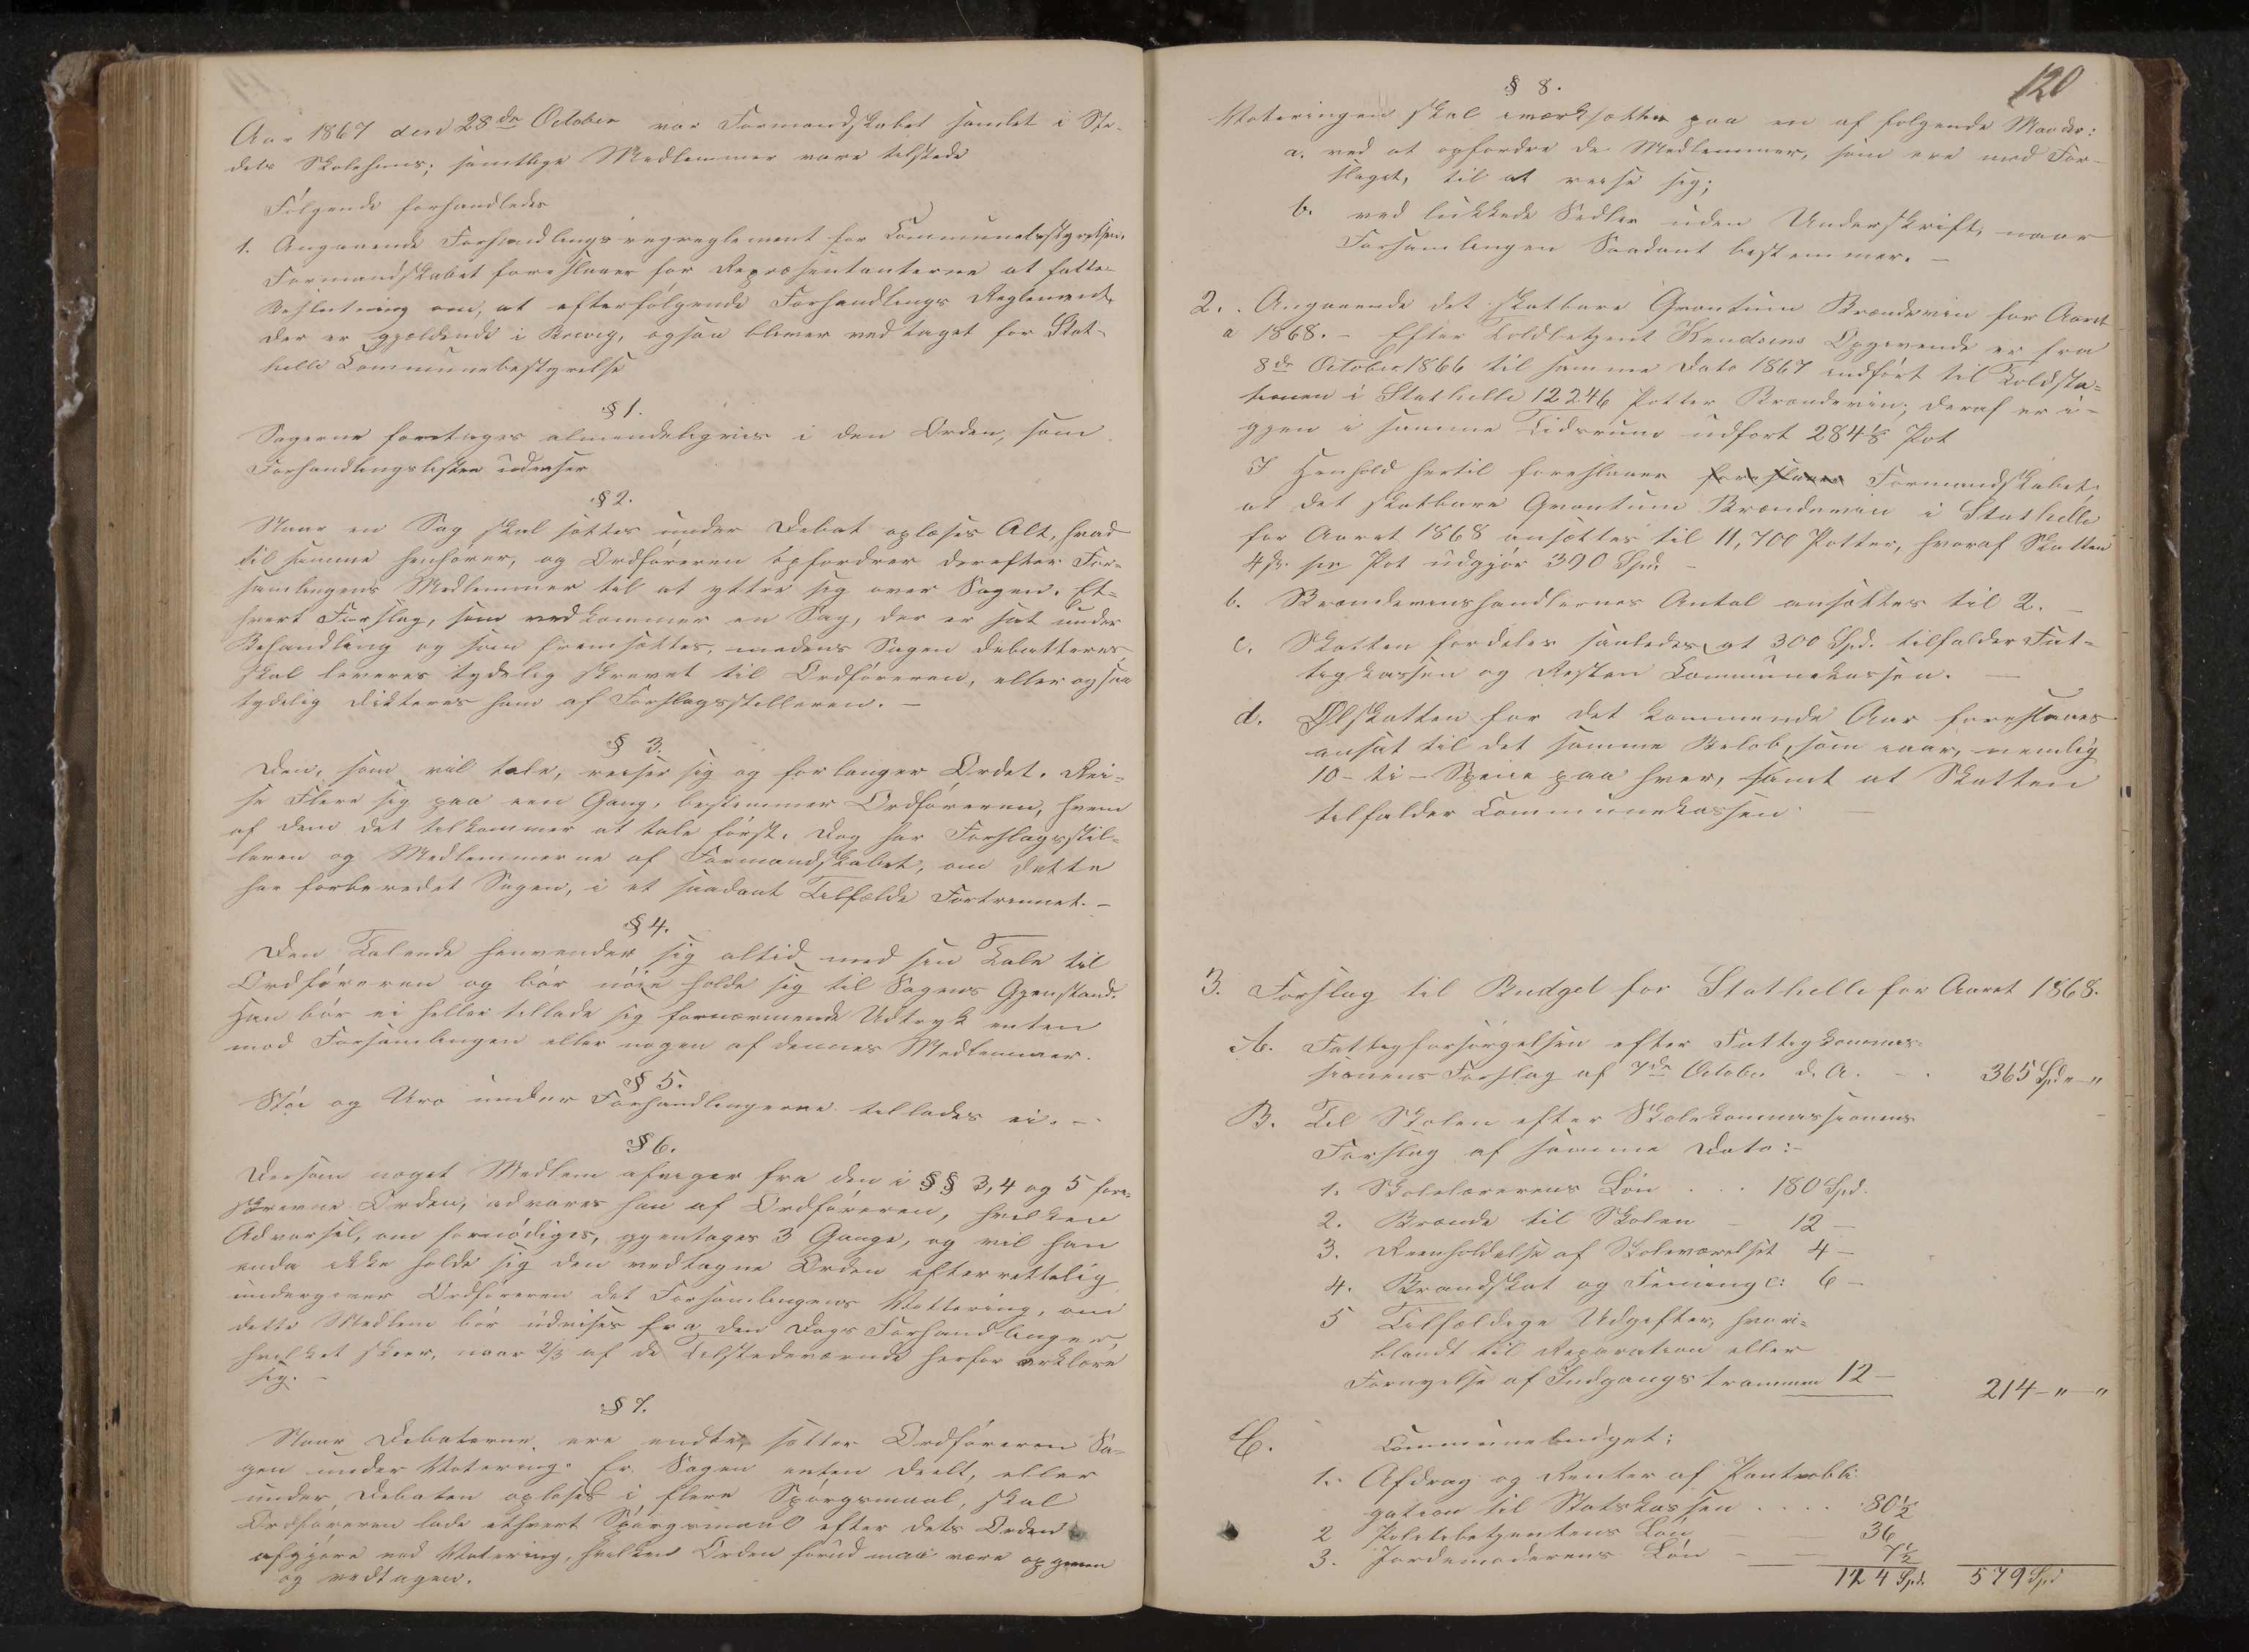 Aar 1867 den 28de October var Formandskabet samlet i Ste-
dets Skolehuus; samtlige Medlemmer vare tilstede
Følgende forhandledes
1. Angaaende Forhandlingsreglement for Communebestyrelsen.
Formandskabet foreslaaer for Repræsentanterne at fatte
Beslutning om, at efterfølgende Forhandlings Reglement,
der er gjældende i Brevig, ogsaa bliver vedtaget for Stat-
helle Communebestyrelse
§ 1.
Sagerne foretages almindeligvis i den Orden, som
Forhandlingslisten udviser
§ 2.
Naar en Sag skal sættes under Debat oplæses Alt, hvad
til samme henhører, og Ordføreren opfordrer derefter For-
samlingens Medlemmer til at yttre sig over Sagen. Et-
hvert Forslag, som vedkommer en Sag, der er sat under
Behandling og som fremsættes, medens Sagen debatteres,
skal leveres tydelig skrevet til Ordføreren, eller ogsaa
tydelig dikteres ham af Forslagsstilleren. –
§ 3.
Den, som vil tale, reiser sig og forlanger Ordet. Rei-
se Flere sig paa een Gang, bestemmer Ordføreren, hvem
af dem det tilkommer at tale først. Dog har Forslagsstil-
leren og Medlemmerne af Formandskabet, om dette
har forberedet Sagen, i et saadant Tilfælde Fortrinnet. –
§ 4.
Den Talende henvender sig altid med sin Tale til
Ordføreren og bør nøie holde sig til Sagens Gjenstand.
Han bør ei heller tillade sig fornærmende Udtryk enten
mod Forsamlingen eller nogen af dennes Medlemmer.
§ 5.
Støi og Uro under Forhandlingerne tillades ei. –
§ 6.
Dersom noget Medlem afviger fra den i §§ 3, 4 og 5 fore-
skrevne Orden, advares han af Ordføreren, hvilken
Advarsel, om fornødiges, gjentages 3 Gange, og vil han
enda ikke holde sig den vedtagne Orden efterrettelig
undergiver Ordføreren det Forsamlingens Vottering, om
dette Medlem bør udvises fra den Dags Forhandlinger
hvilket skeer, naar 2/3 af de Tilstedeværende herfor erklære
sig. –
§ 7.
Naar Debatterne ere endte, sætter Ordføreren Sa-
gen under Votering. Er Sagen enten deelt, eller
under Debatten opløset i flere Spørgsmaal, skal
Ordføreren lade ethvert Spørgsmaal efter dets Orden
afgjøre ved Votering, hvilken Orden forud maa være opgiven
og vedtagen.
120
§ 8.
Voteringen skal iværksættes paa en af følgende Maader:
a. ved at opfordre de Medlemmer, som ere mod For-
slaget, til at reise sig;
b. ved lukkede Sedler uden Underskrift, naar
Forsamlingen Saadant bestemmer. –
2. Angaaende det skatbare Qvantum Brændeviin for Aaret
a 1868. – Efter Toldbetjent Knudsens Opgivende er fra
8de October 1866 til samme Dato 1867 indført til Toldsta-
tionen i Stathelle 12246 Potter Brændeviin; deraf er i-
gjen i samme Tidsrum udført 284 1/8 Pot
I Henhold hertil foreslaaer foreslaaer Formandskabet
at det skatbare Qvantum Brændeviin i Stathelle
for Aaret 1868 ansættes til 11,700 Potter, hvoraf Skatten
4 ß. pr Pot udgjør 390 Spd. –
b. Brændeviinshandlernes Antal ansættes til 2. –
c. Skatten fordeles saaledes, at 300 Spd. tilfalder Fat-
tigkassen og Resten Communekassen. –
d. Ølskatten for det kommende Aar foreslaaes
ansat til det samme Beløb, som iaar, nemlig
10 – ti – Specie paa hver, samt at Skatten
tilfalder Communekassen –
3. Forslag til Budget for Stathelle for Aaret 1868.
A. Fattigforsørgelsen efter Fattigkommis-
sionens Forslag af 7de October d. A. – . 365 Spd " – "
B. Til Skolen efter Skolekommissionens
Forslag af samme Dato: –
1. Skolelærerens Løn . . . 180 Spd.
2. Brænde til Skolen – 12 –
3. Reenholdelse af Skoleværelset 4 –
4. Brandskat og Feining c: 6 –
5 Tilfældige Udgifter, hvori-
blandt til Reparation eller
Fornyelse af Indgangstrammen 12 – 214 – " – "
C. Communebudget:
1. Afdrag og Renter af Pantobli-
gation til Statskassen . . . . 80 1/2
2 Politibetjentens Løn – 36
3. Jordemoderens Løn – 7 1/2
124 Spd. 579 Spd